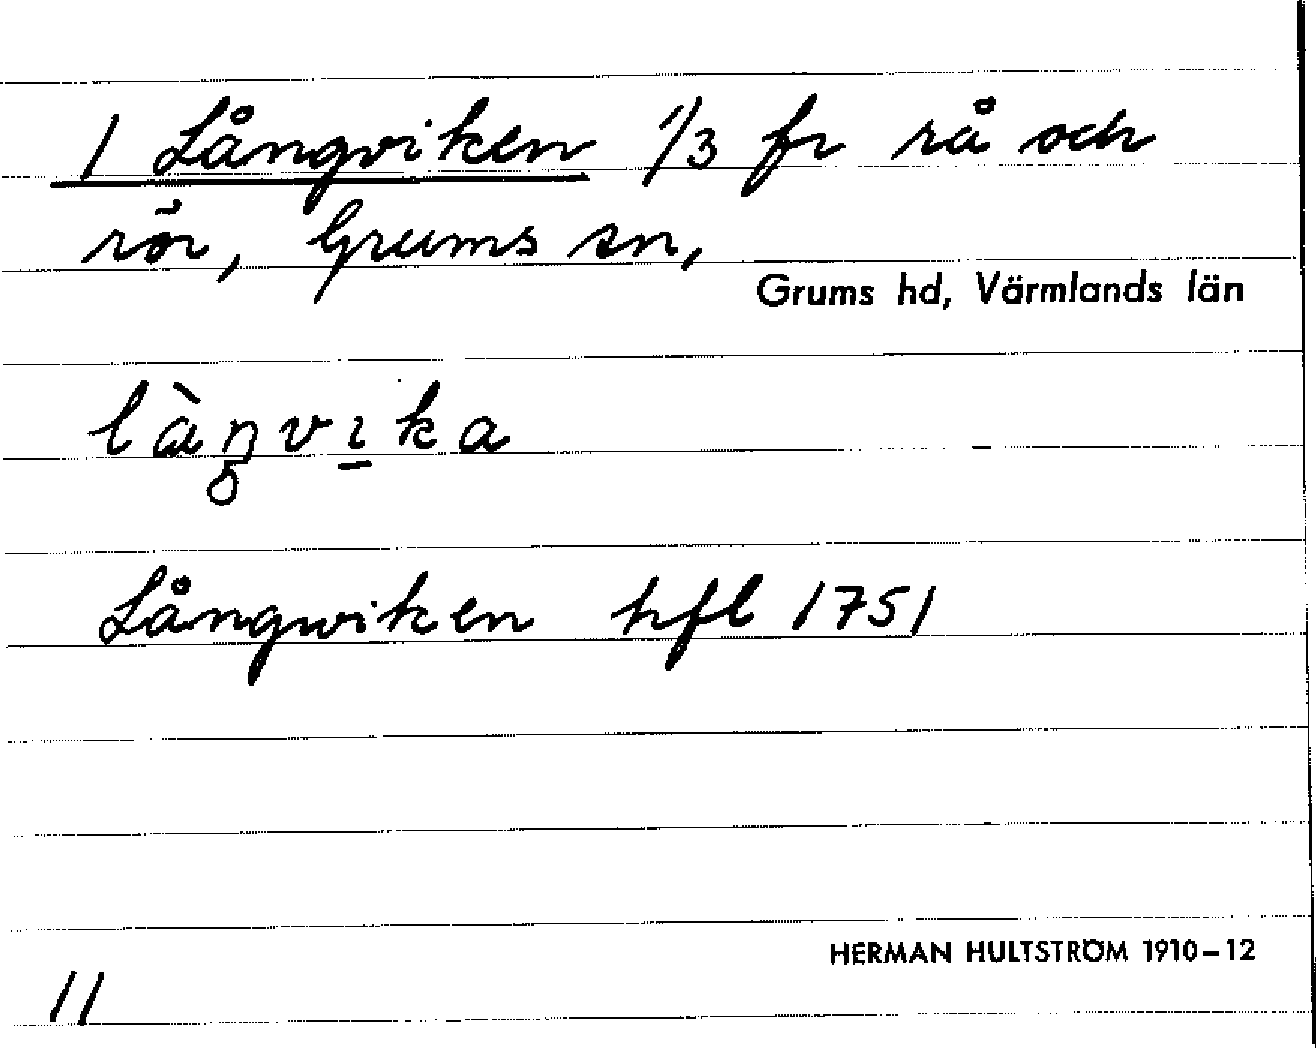 1 Långviken 1/3 fr rå och
rör, Grums sn,
Grums hd, Värmlands län
Långwiken hfl 1751
HERMAN HULTSTRÖM 1910–12
11